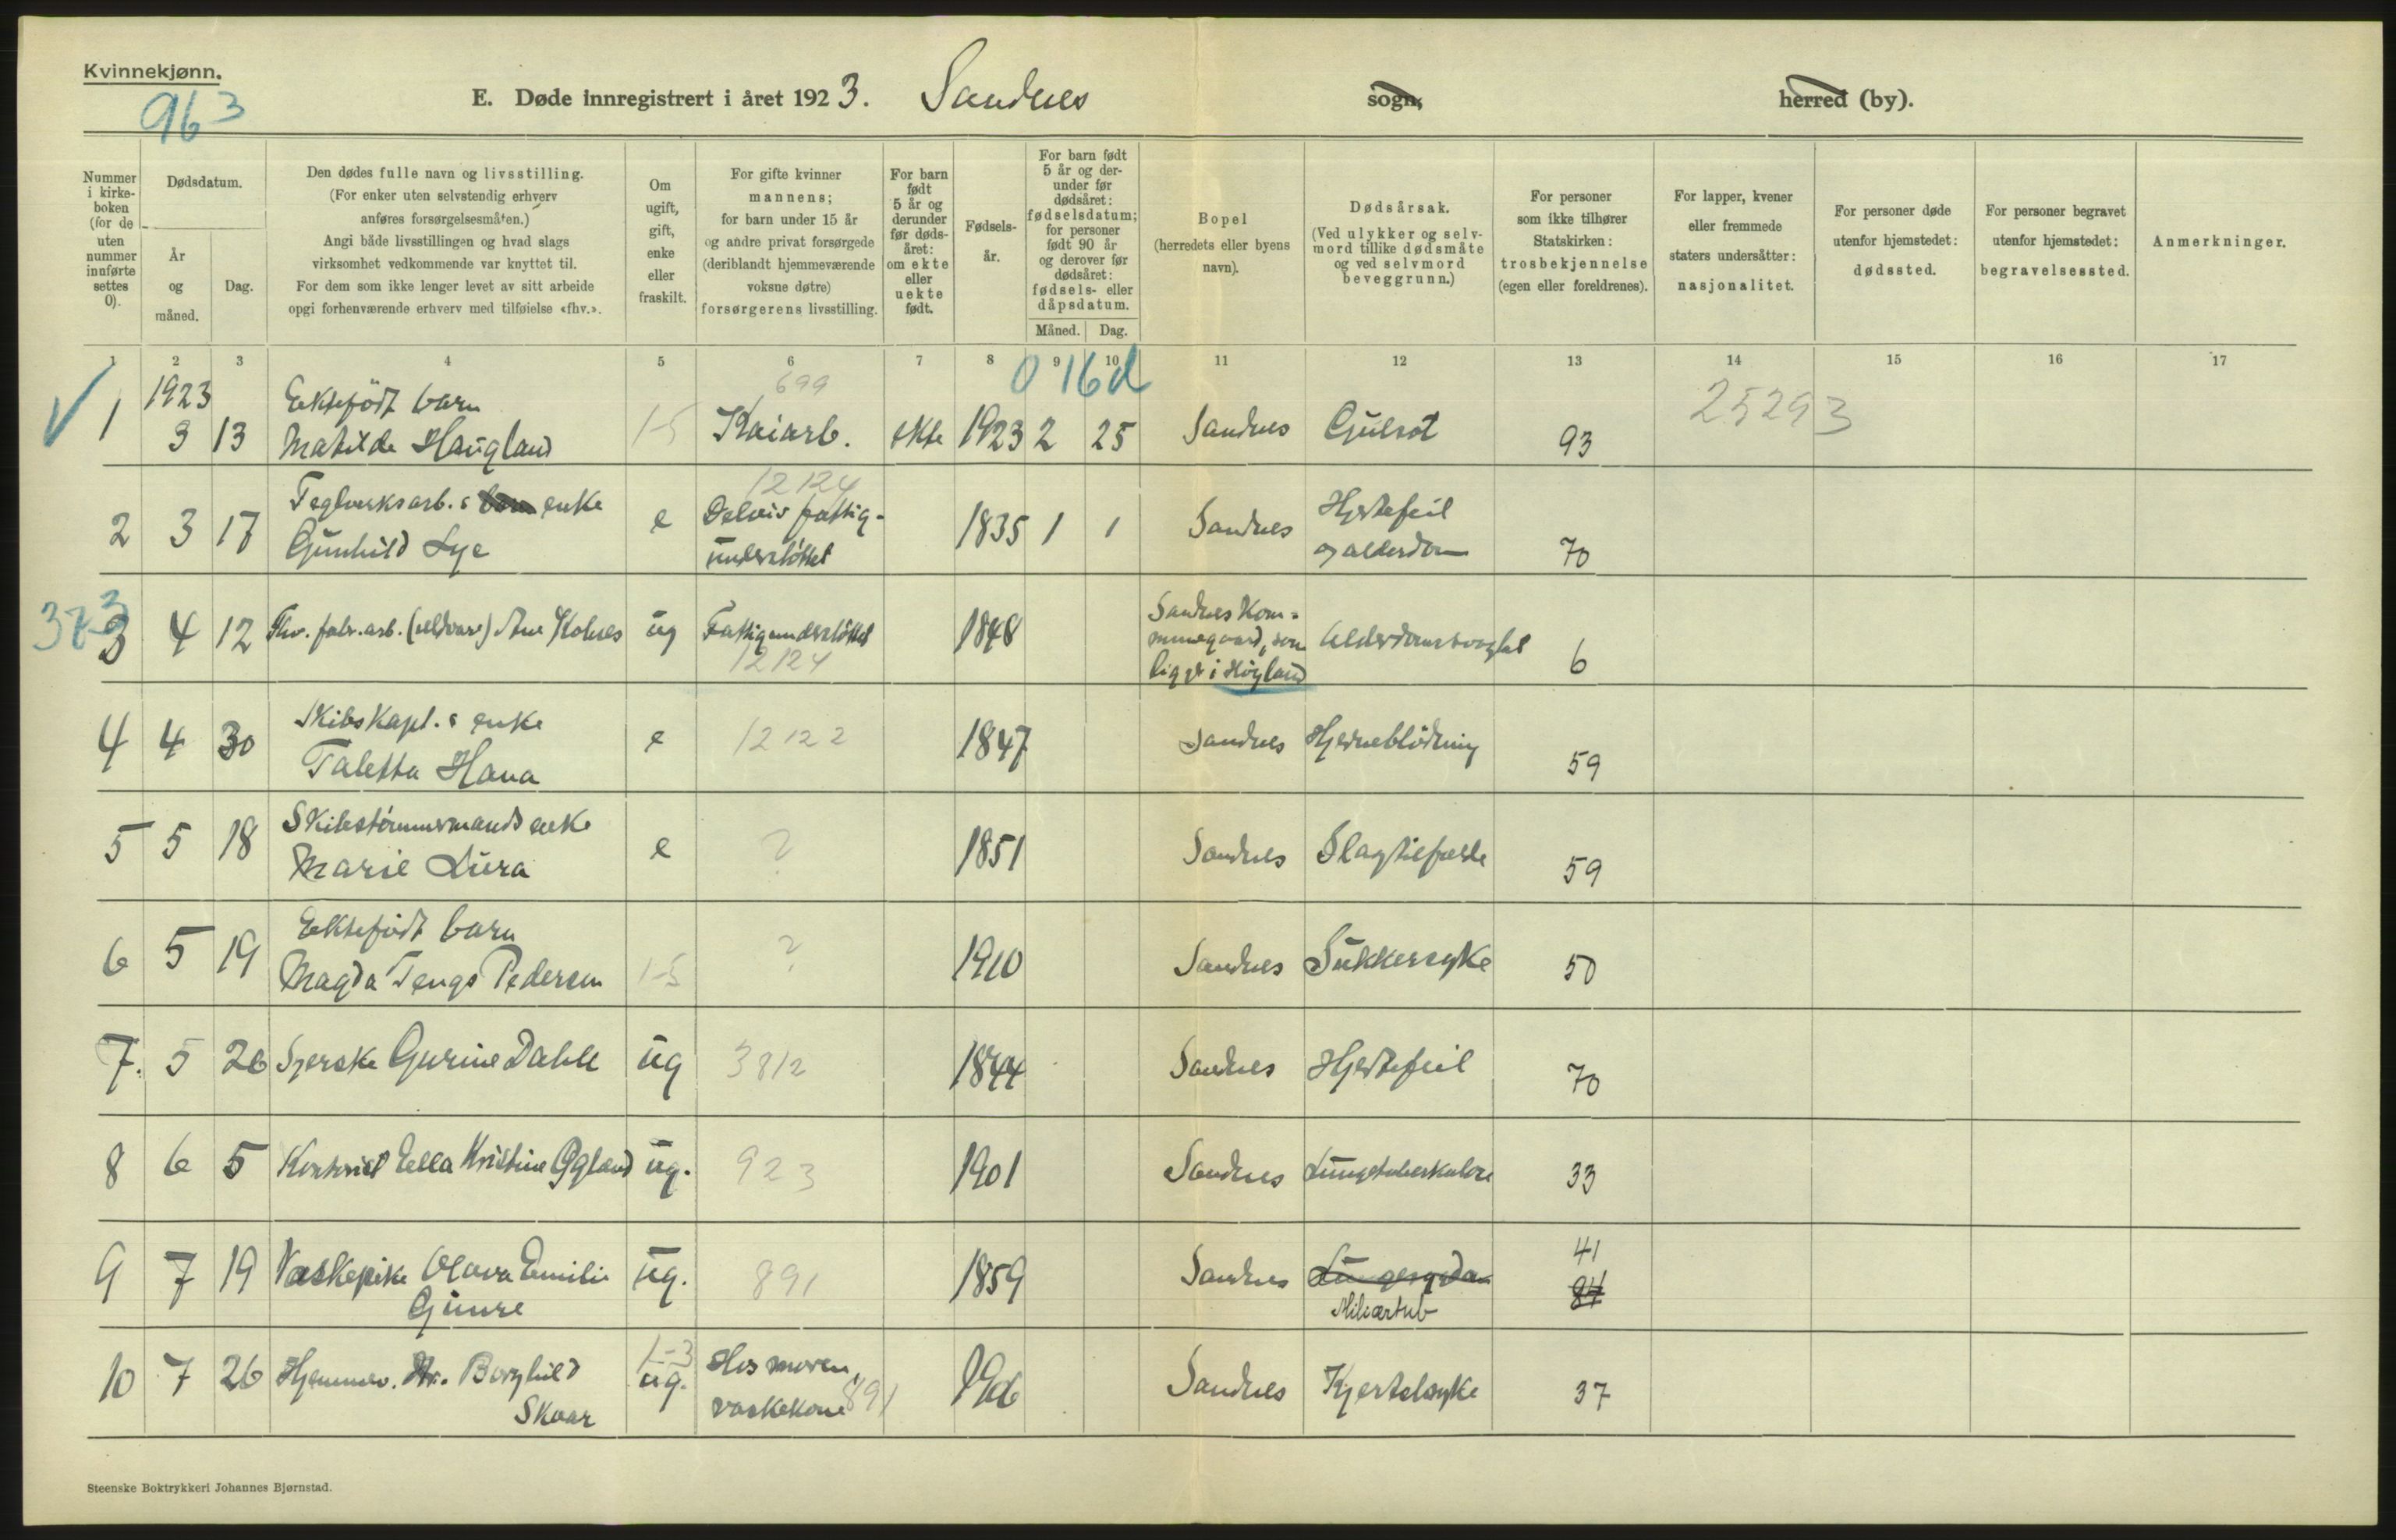 Kvinnekjønn.
963
E. Døde innregistrert i året 1923. Sandnes sogn, herred (by).
Nummer i kirke-boken (for de uten nummer innførte settes 0).
Dødsdatum.
År og måned.
Dag.
Den dødes fulle navn og livsstilling.
(For enker uten selvstendig erhverv
anføres forsørgelsesmåten.)
Angi både livsstillingen og hvad slags
virksomhet vedkommende var knyttet til.
For dem som ikke lenger levet av sitt arbeide
opgi forhenværende erhverv med tilføielse «fhv.».
Om ugift, gift, enke eller fraskilt.
For gifte kvinner
mannens;
for barn under 15 år
og andre privat forsørgede
(deriblandt hjemmeværende
voksne døtre)
forsørgerens livsstilling.
For barn født 5 år og derunder før døds-året: om ekte eller uekte født.
Fødsels-år.
For barn født
5 år og der-
under før
dødsåret:
fødselsdatum;
for personer
født 90 år
og derover før
dødsåret:
fødsels- eller
dåpsdatum.
Måned. Dag.
Bopel
(herredets eller byens
navn).
Dødsårsak.
(Ved ulykker og selv-
mord tillike dødsmåte
og ved selvmord
beveggrunn.)
For personer
som ikke tilhører
Statskirken:
trosbekjennelse
(egen eller foreldrenes).
For lapper, kvener
eller fremmede
staters undersåtter:
nasjonalitet.
For personer døde
utenfor hjemstedet:
dødssted.
For personer begravet
utenfor hjemstedet:
begravelsessted.
Anmerkninger.
1 2 3 4 5 6 7 8 9 10 11 12 13 14 15 16 17
0 16d
1923 Ektefødt barn 699 25293
1 3 13 Matilde Haugland 1-5 Kaiarb. ekte 1923 2 25 Sandnes Gulsot 93
Teglverksarb.s enke 12124
2 3 17 Gunhild Lye e Delvis fattig-understøttet 1835 1 1 Sandnes Hjertefeil og alderdom 70
373
3 4 12 Fhv. fabr.arb. (uldvare) Ane ug Fattigunderstøttet 12124 1848 Sandnes Kom-munegaard, som ligger i Høyland 6
4 4 30 Skibskapt.s enke Taletta Hana e 12122 1847 Sandnes Hjerneblødning 59
5 5 18 Skibstømmermands enke Marie Lura e ? 1851 Sandnes Slagtilfælde 59
6 5 19 Ektefødt barn Magda Tengs Pedersen 1-5 ? 1910 Sandnes Sukkersyke 50
7. 5 26 Syerske Gurine Dahle ug 3812 1844 Sandnes Hjertefeil 70
8 6 5 Kontorist Ella Kristine ug. 923 1901 Sandnes Lungetuberkulose 33
9 7 19 Vaskepike Olava Emilie Gimre ug. 891 1859 Sandnes Miliærtub 41 84
10 7 26 Hjemmev. dtr. Borghild Skaar 1-3 ug. Hos moren, vaskekone 891 1906 Sandnes Kjertelsyke 37
Steenske Boktrykkeri Johannes Bjørnstad.